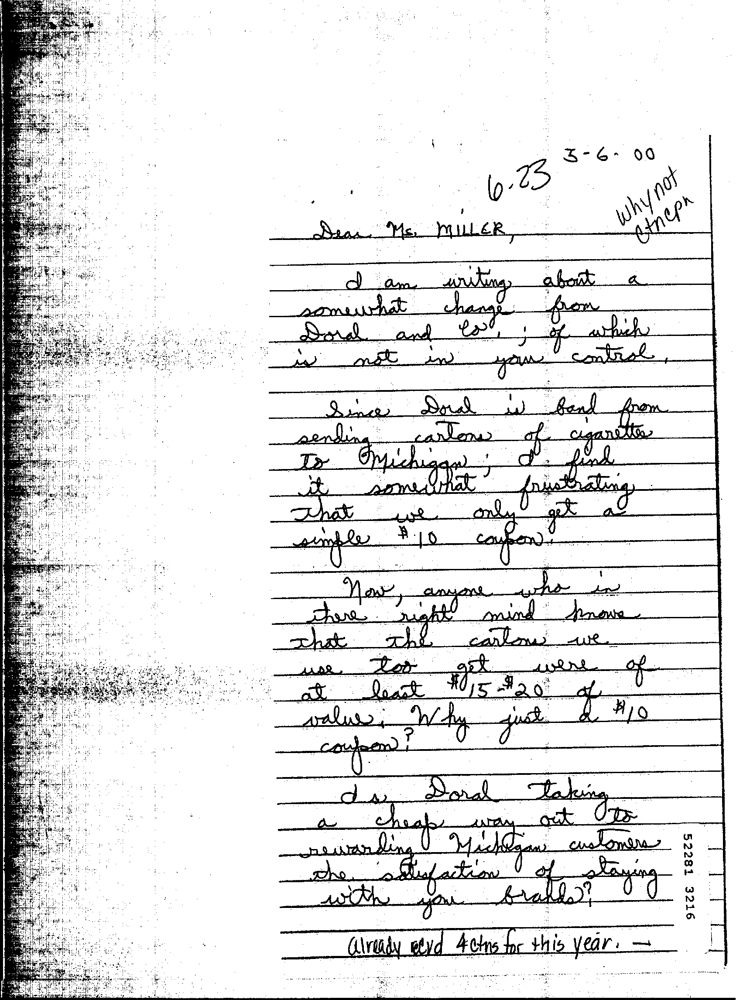 3-6-00
6-23
Why not
ctn cpn
Dear Ms. MILLER,
I am writing about a
somewhat change from
Doral and Co., ; of which
is not in your control.
Since Doral is band from
sending cartons of cigarettes
to Michigan; I find
it somewhat frustrating
that we only get a
simple $10 coupon.
Now, anyone who in
there right mind knows
that the cartons we
use too get were of
at least $15-$20 of
value; Why just a $10
coupon?
Is Doral taking
a cheap way out to
rewarding Michigan customers
the satisfaction of staying
with your brands?
already recvd 4 ctns for this year. —
52281 3216